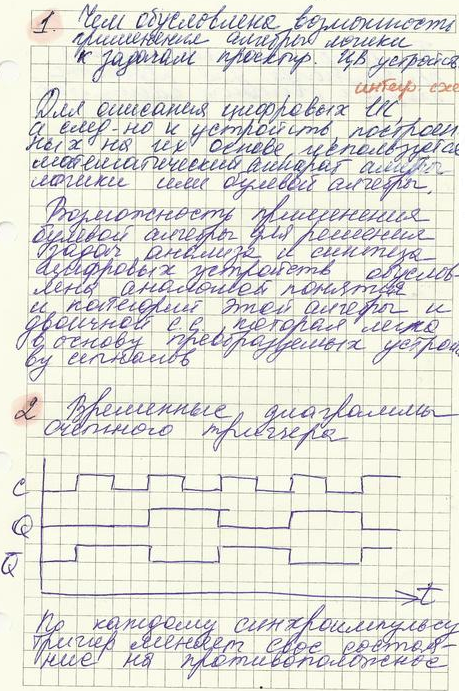 1. Чем обусловлена возможность
применения алгебры логики
к задачам проектир. ЦВ устройств
интегр схе
Для описания цифровых ИС,
а след-но и устройств, построен
ных на их основе используется
математический аппарат алгебры
логики или булевой алгебры.
Возможность применения
булевой алгебры для решения
задач анализа и синтеза
цифровых устройств обуслов-
лена аналогией понятия
и категорий этой алгебры и
двоичной с.с, которая легла
в основу преобразуемых устрой
ву сигналов
2 Временные диаграммы
счетного триггера
C
Q
Q̅
t
По каждому синхроимпульсу
тригер меняет свое состоя-
ние на противоположное